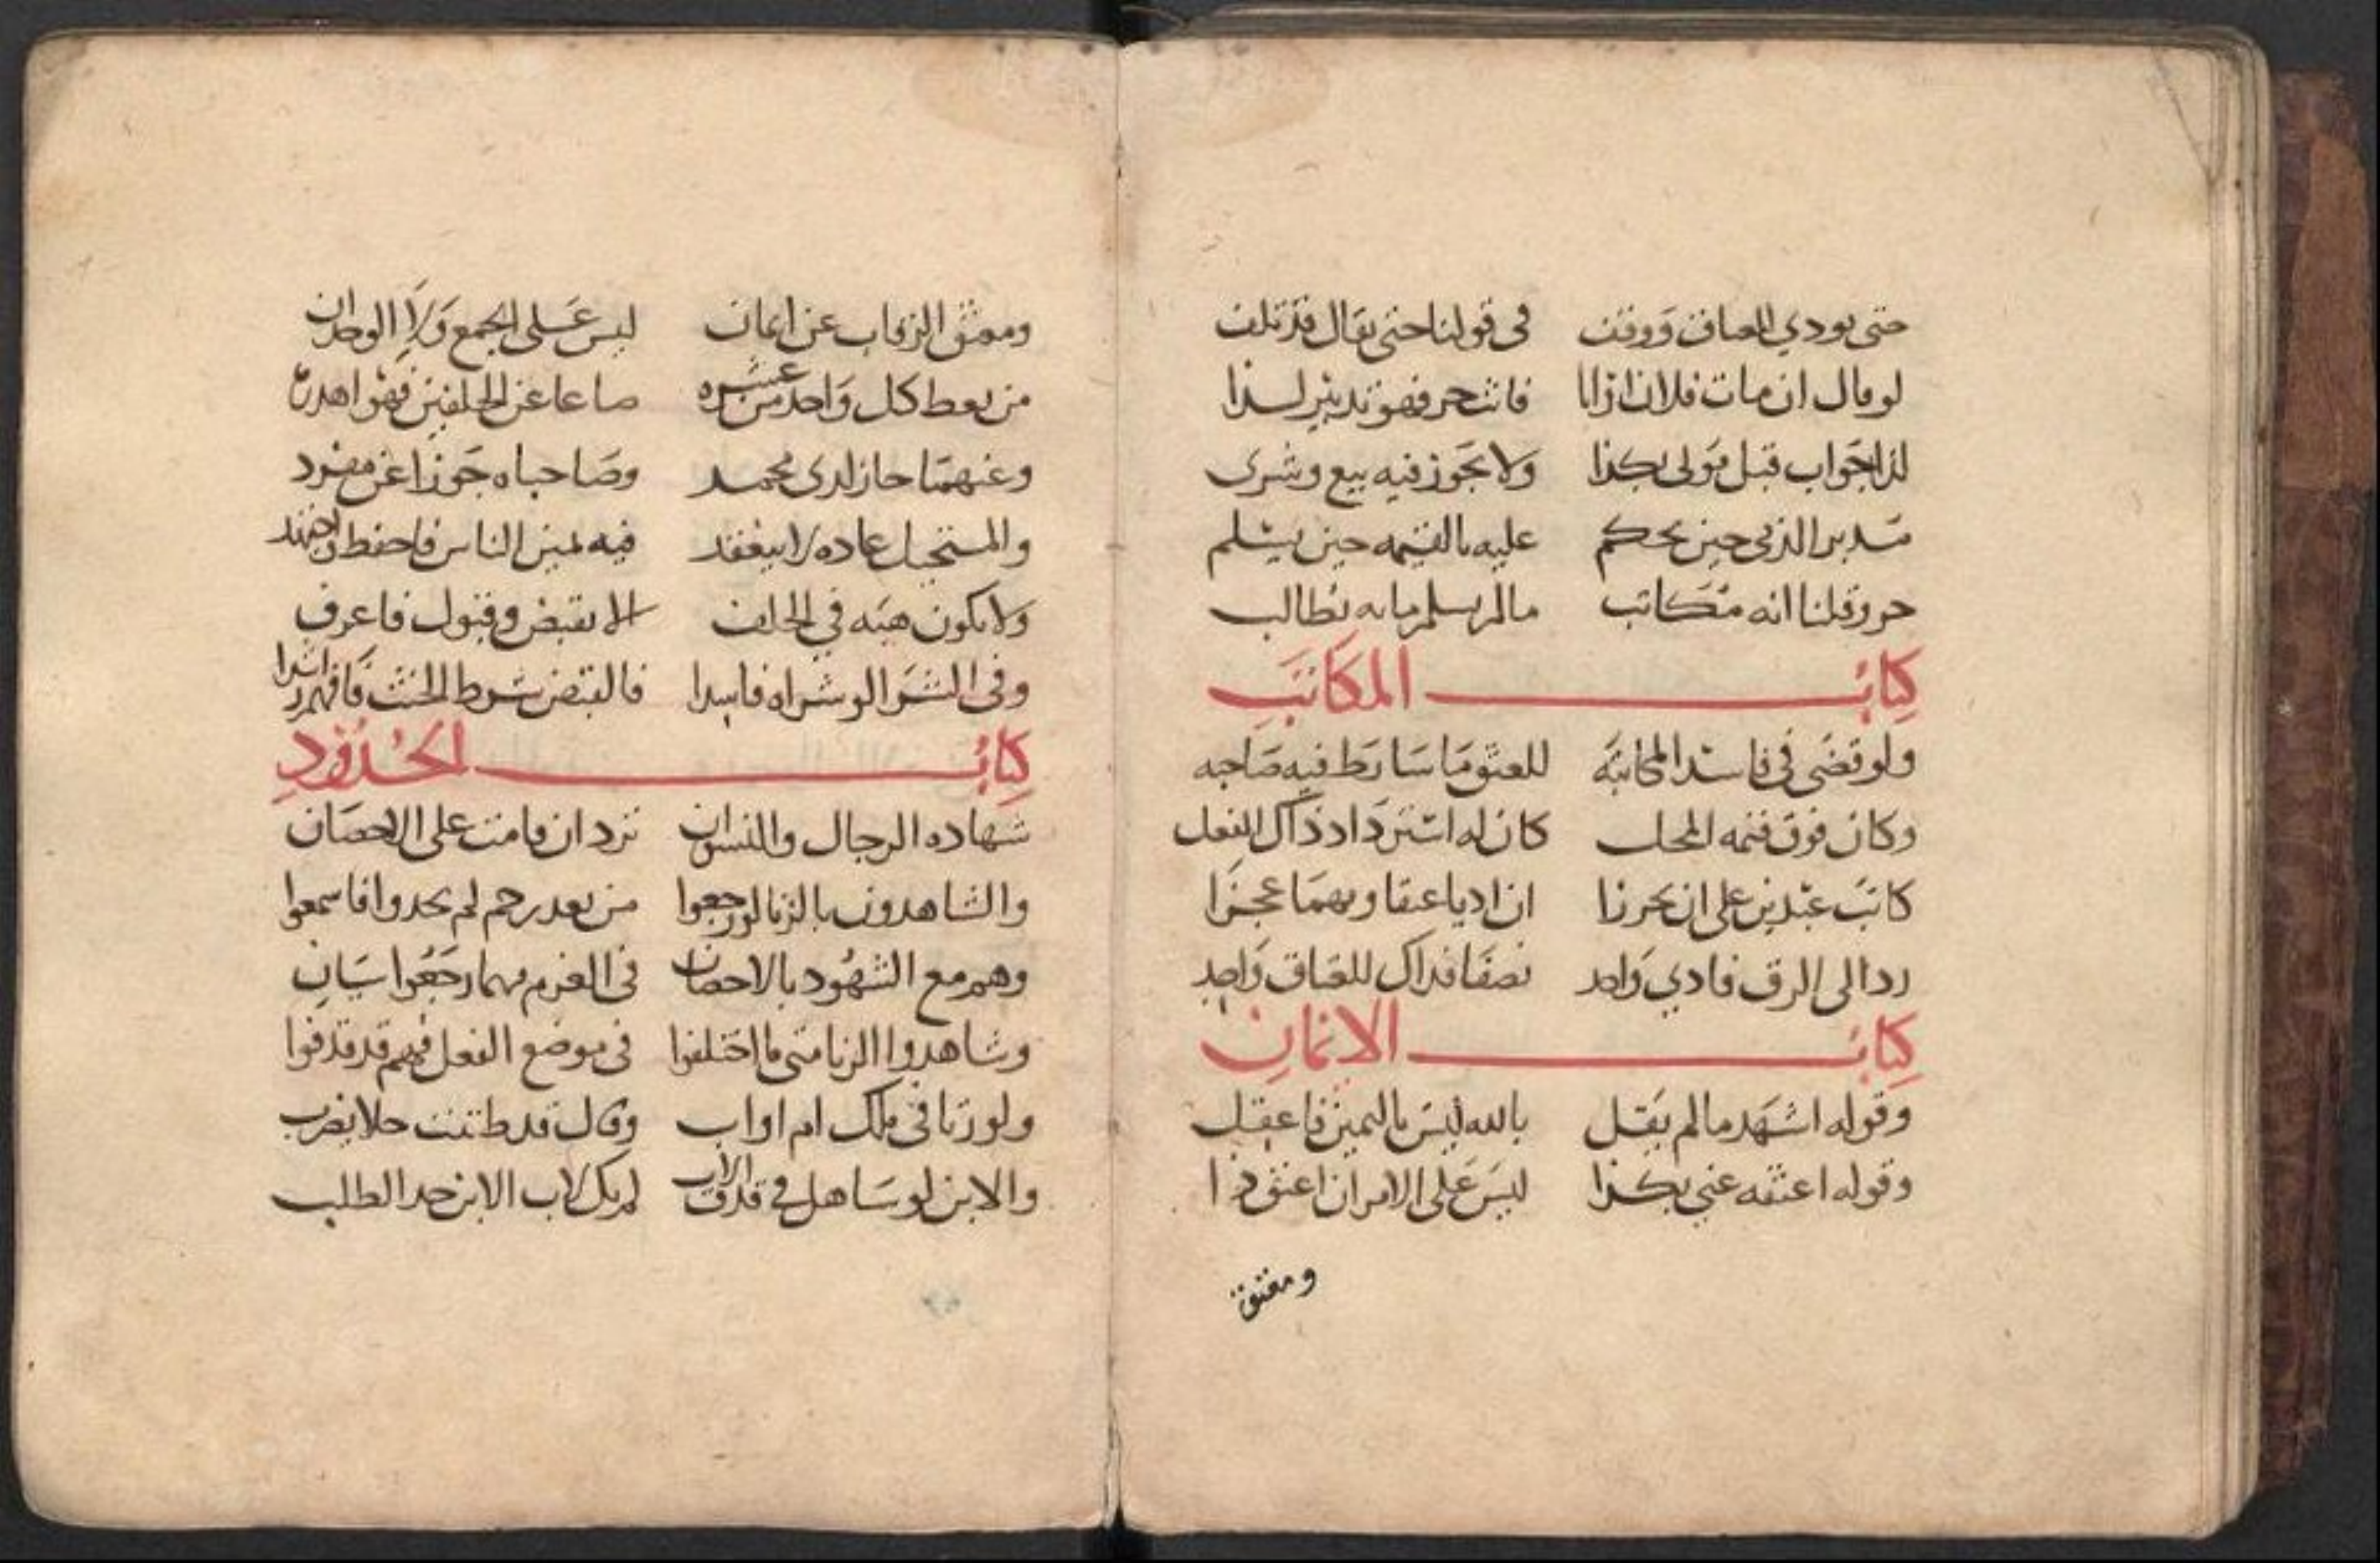 حتى يودي العتاق ووفت في قولنا حتى يقال قد تلف
لو قال ان مات فلان اذا انا فانت حر فهو تدبير لذا
لذا جواب قبل قولي بكذا ولا يجوز فيه بيع وشرى
مدبر الذمي حين يحكم عليه بالقيمه حين يسلم
حر وقلنا انه مكاتب مالم يسلم ما به يطالب
كتاب المكاتب
ولو قضى في فاسد المكاتبه للعتق ما شارط فيه صاحبه
وكان فوق قيمه المحل كان له استرداد ذاك الفعل
كاتب عبدين على ان يحرزا ان اديا عتقا ومهما عجزا
ردا الى الرق فادي واحد نصفا فذاك للعتاق واحد
كتاب الايمان
وقوله اشهد مالم يقل بالله ليس باليمين فاعقل
وقوله اعتقه عني بكذا ليس على الامر ان اعتق ذا
ومعتق
ومعتق الرقاب عن ايمان ليس على الجمع ولا الوحدان
من يعط كل واحد من عشره صاعا عن الحلفين فهو اهدره
وعنهما جاز لدى محمد وصاحباه جوزا عن مفرد
والمستحيل عاده لا ينعقد فيه يمين الناس فاحفظ واجتهد
ولا يكون هبه في الحلف الا بقبض وقبول فاعرف
وفي الشرا لو شراه فاسدا فالقبض شرط الحنث فافهم راشدا
كتاب الحدود
شهاده الرجال والنسوان ترد ان قامت على الاحصان
والشاهدون بالزنا لو رجعوا من بعد رجم لم يحدوا فاسمعوا
وهم مع الشهود بالاحصان في الغرم مهما رجعوا سيان
وشاهدوا الزنا متى ما اختلفوا في موضع الفعل فهم قد قذفوا
ولو زنا في ملك ام او اب وقال قد ظننت حلا يضرب
والابن لو ساهل في قذف الاب لم يك لاب الابن حد الطلب